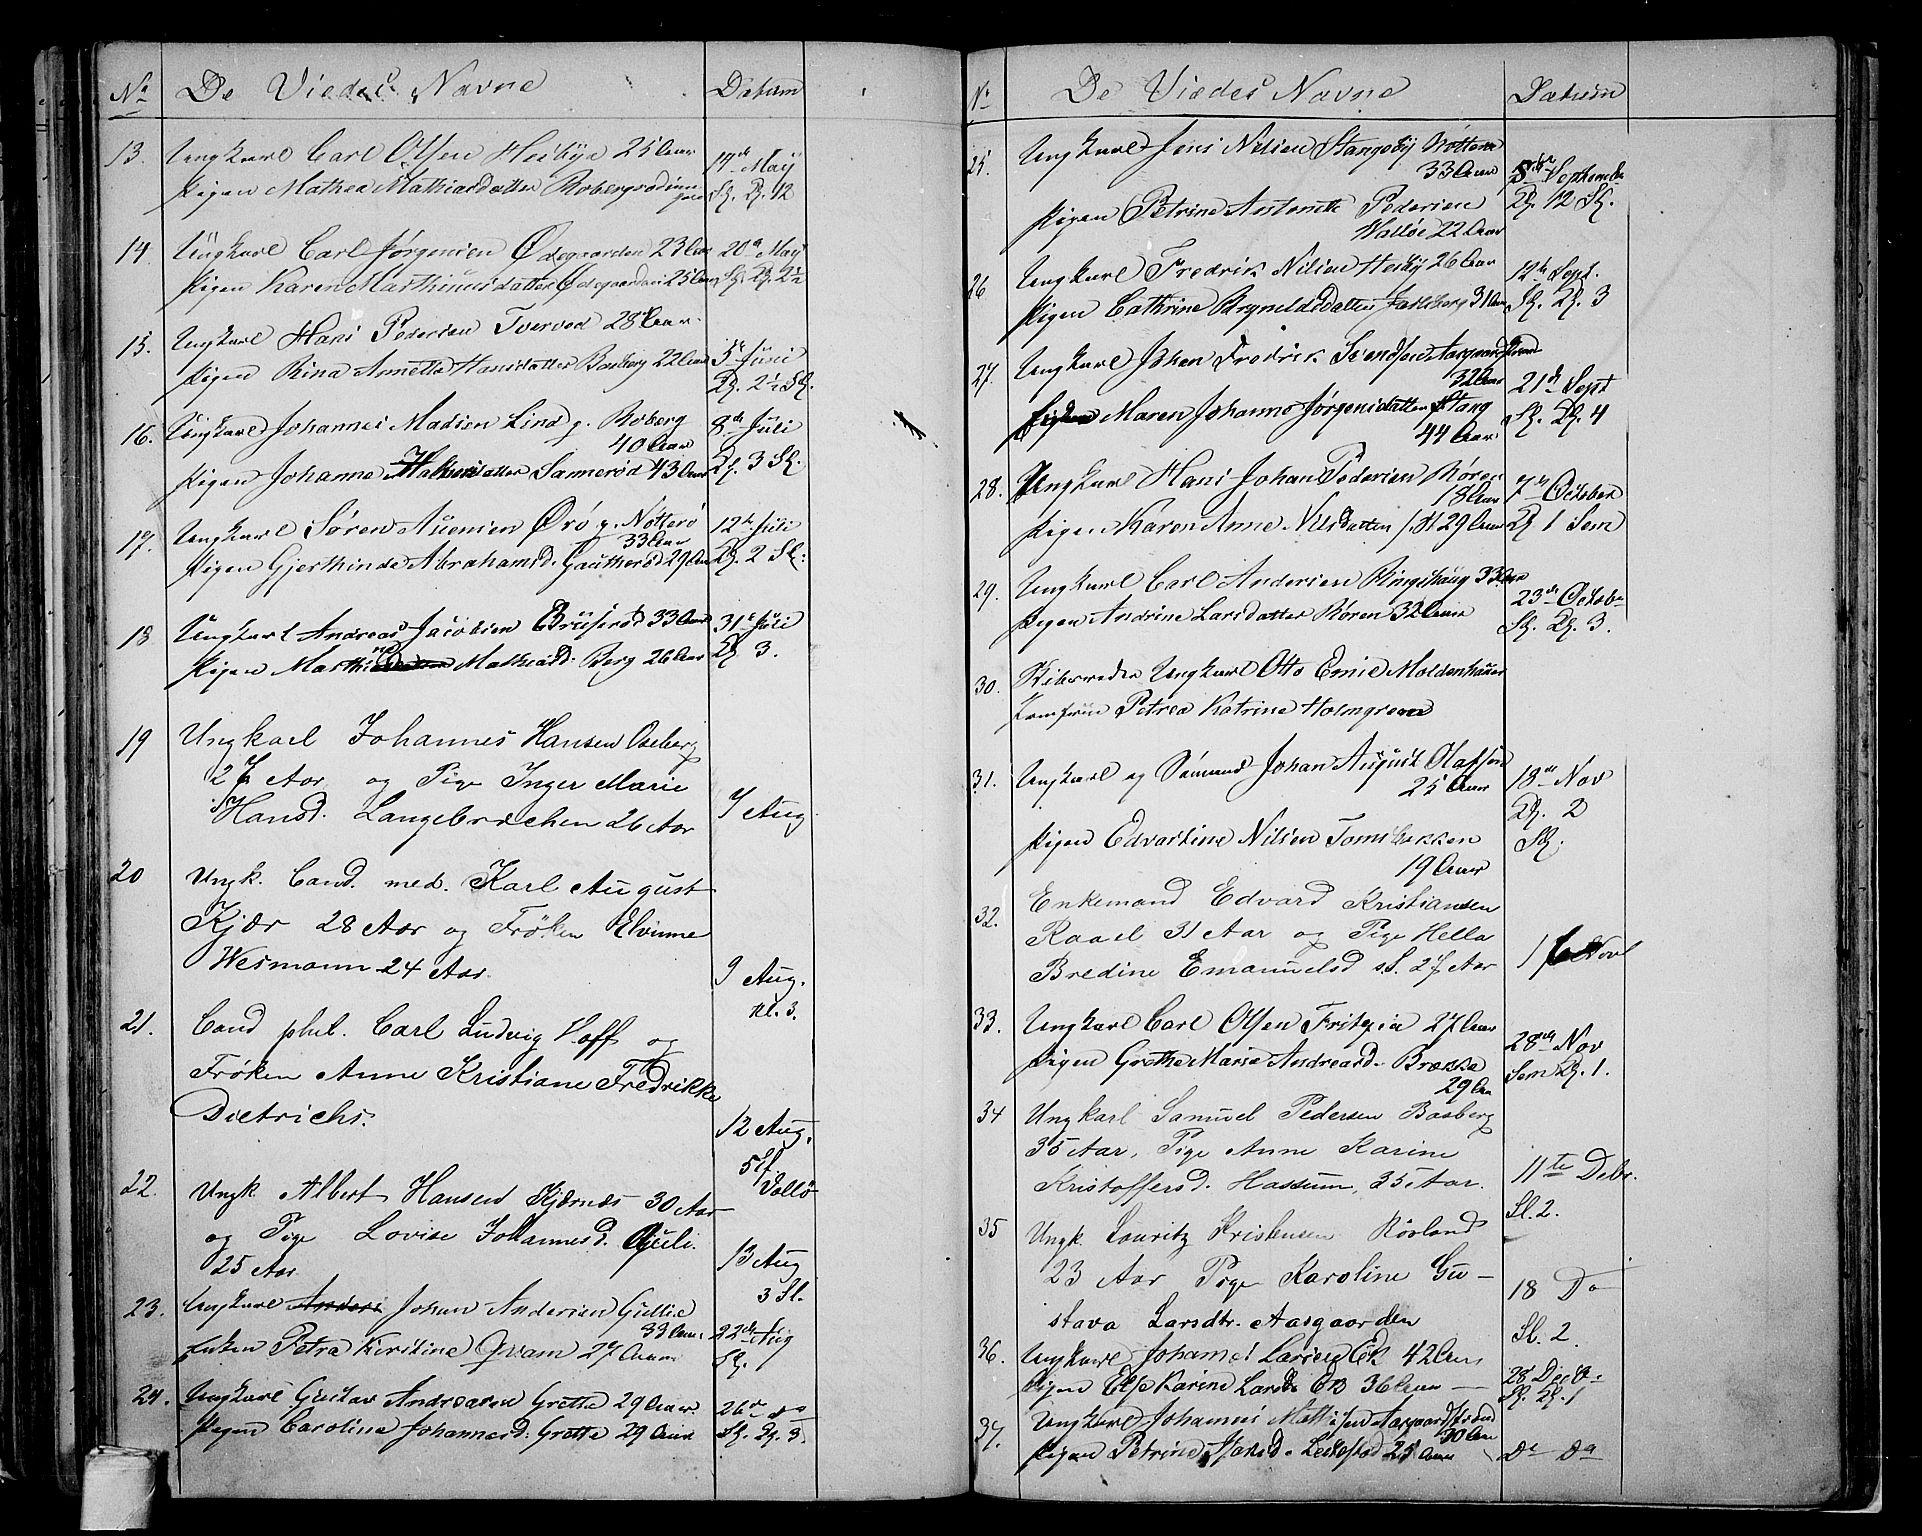 No De Viedes Navne Datum
13. Ungkarl Carl Olsen Hesbye 25 Aar
Pigen Mathea Mathiasdatter Robergsrød
17de Maÿ
Sl. Kl. 12
14. Ungkarl Carl Jørgensen Ødegaarden 23 Aar 20de Maÿ
Pigen Karen Marthinusdatter Ødegaarden 25 Aar Sl. Kl. 2½
15. Ungkarl Hans Pedersen Tverved 28 Aar
Pigen Rina Annette Hansdatter Basberg 22 Aar 5te Juni
Kl. 2½ Sl.
16. Ungkarl Johannes Madsen Lind g. Roberg 8de Juli
40 Aar
Pigen Johanne Halvorsdatter Sannerød 43 Aar Kl. 3 Sl.
17. Ungkarl Søren Ausensen Ørø g. Nøtterø 12te Juli
33 Aar
Pigen Gjerthinde Abrahamsd. Gautherød 29 Aar Kl. 2 Sl.
18 Ungkarl Andreas Jacobsen Brüserød 33 Aar 31te Juli
Pigen Marthine Mathiasd. Berg 26 Aar Kl 3.
19 Ungkarl Johannes Hansen Oseberg
27 Aar og Pige Inger Marie
Hansd. Langebrækken 26 Aar 7 Aug
20 Ungk. Cand. med. Karl August
Kjær 28 Aar og Frøken Elvinne
Wesmann 24 Aar. 9 Aug.
Kl. 3.
21. Cand phil. Carl Ludvig Hoff og
Frøken Anne Kristiane Fredrikke
Dietrichs. 12 Aug.
5 Ef.
Vallø
22. Ungk Albert Hansen Kjærnæs 30 Aar
og Pige Lovise Johannesd. Guli.
25 Aar 13 Aug
3 Sl.
23. Ungkarl Anders Johan Andersen Gullie
33 Aar 22de Aug
Enken Petra Kirstine Qvam 27 Aar Sl.
24. Ungkarl Gustav Andreasen Grette 29 Aar 26de do
Pigen Caroline Johannesd. Grette 29 Aar Sl. Kl. 3.
No De Viedes Navne Datum
25. Ungkarl Jens Nilsen Stangeby Nøtterø
33 Aar
Pigen Petrine Antonette Pedersen
Walløe 22 Aar
5te September
Kl. 12 Sl.
26 Ungkarl Fredrik Nilsen Hesby 26 Aar 12te Sept.
Pigen Cathrine Brynildsdatter Jarlsberg 31 Aar Sl. Kl. 3
27. Ungkarl Johan Fredrik Svendsen Aasgaardstrand
32 Aar 21de Sept
Pigen Maren Johanne Jørgensdatter Stang Sl. Kl. 4
44 Aar
28. Ungkarl Hans Johan Pedersen Røren 7de October
18 Aar
Pigen Karen Anne Nilsdatter 29 Aar Kl 1 Sem
29. Ungkarl Carl Andersen Ringshaug 33 Aar 23de Octob
Pigen Andrine Larsdatter Røren 32 Aar Sl. Kl. 3.
30. Skibsreder Ungkarl Otto Emil Moldenhauer
Jomfrue Petrea Katrine Holmgreen
31. Ungkarl og Sømand Johan August Olafsen 18de Nov
25 Aar Kl. 2
Pigen Edvartine Nilsen Tomsbakken Sl.
19 Aar
32. Enkemand Edvard Kristiansen
Raael 31 Aar og Pige Hella
Bredine Emanuelsd s.S. 27 Aar 16 Nov
33. Ungkarl Carl Olsen Fritzøe 27 Aar
Pigen Grethe Marie Andreasd. Brække
29 Aar
28de Nov
Sem Kl. 1.
34 Ungkarl Samuel Pedersen Basberg
35 Aar, Pige Anne Karine
Kristoffersd. Hassum, 35 Aar. 11te Debr.
Sl. 2.
35 Ungk. Louritz Kristensen Røsland
23 Aar Pige Karoline Gu-
stava Larsdtr. Aasgaarden
18 Do
Sl. 2
36. Ungkarl Johannes Larsen Ek 42 Aar
Pigen Else Karine Larsd. Ek 36 Aar
28 Dec
Sl. Kl. 1
37. Ungkarl Johannes Mathisen Aasgaardstrand
30 Aar
Pigen Petrine Hansd. 25 Aar Do Do